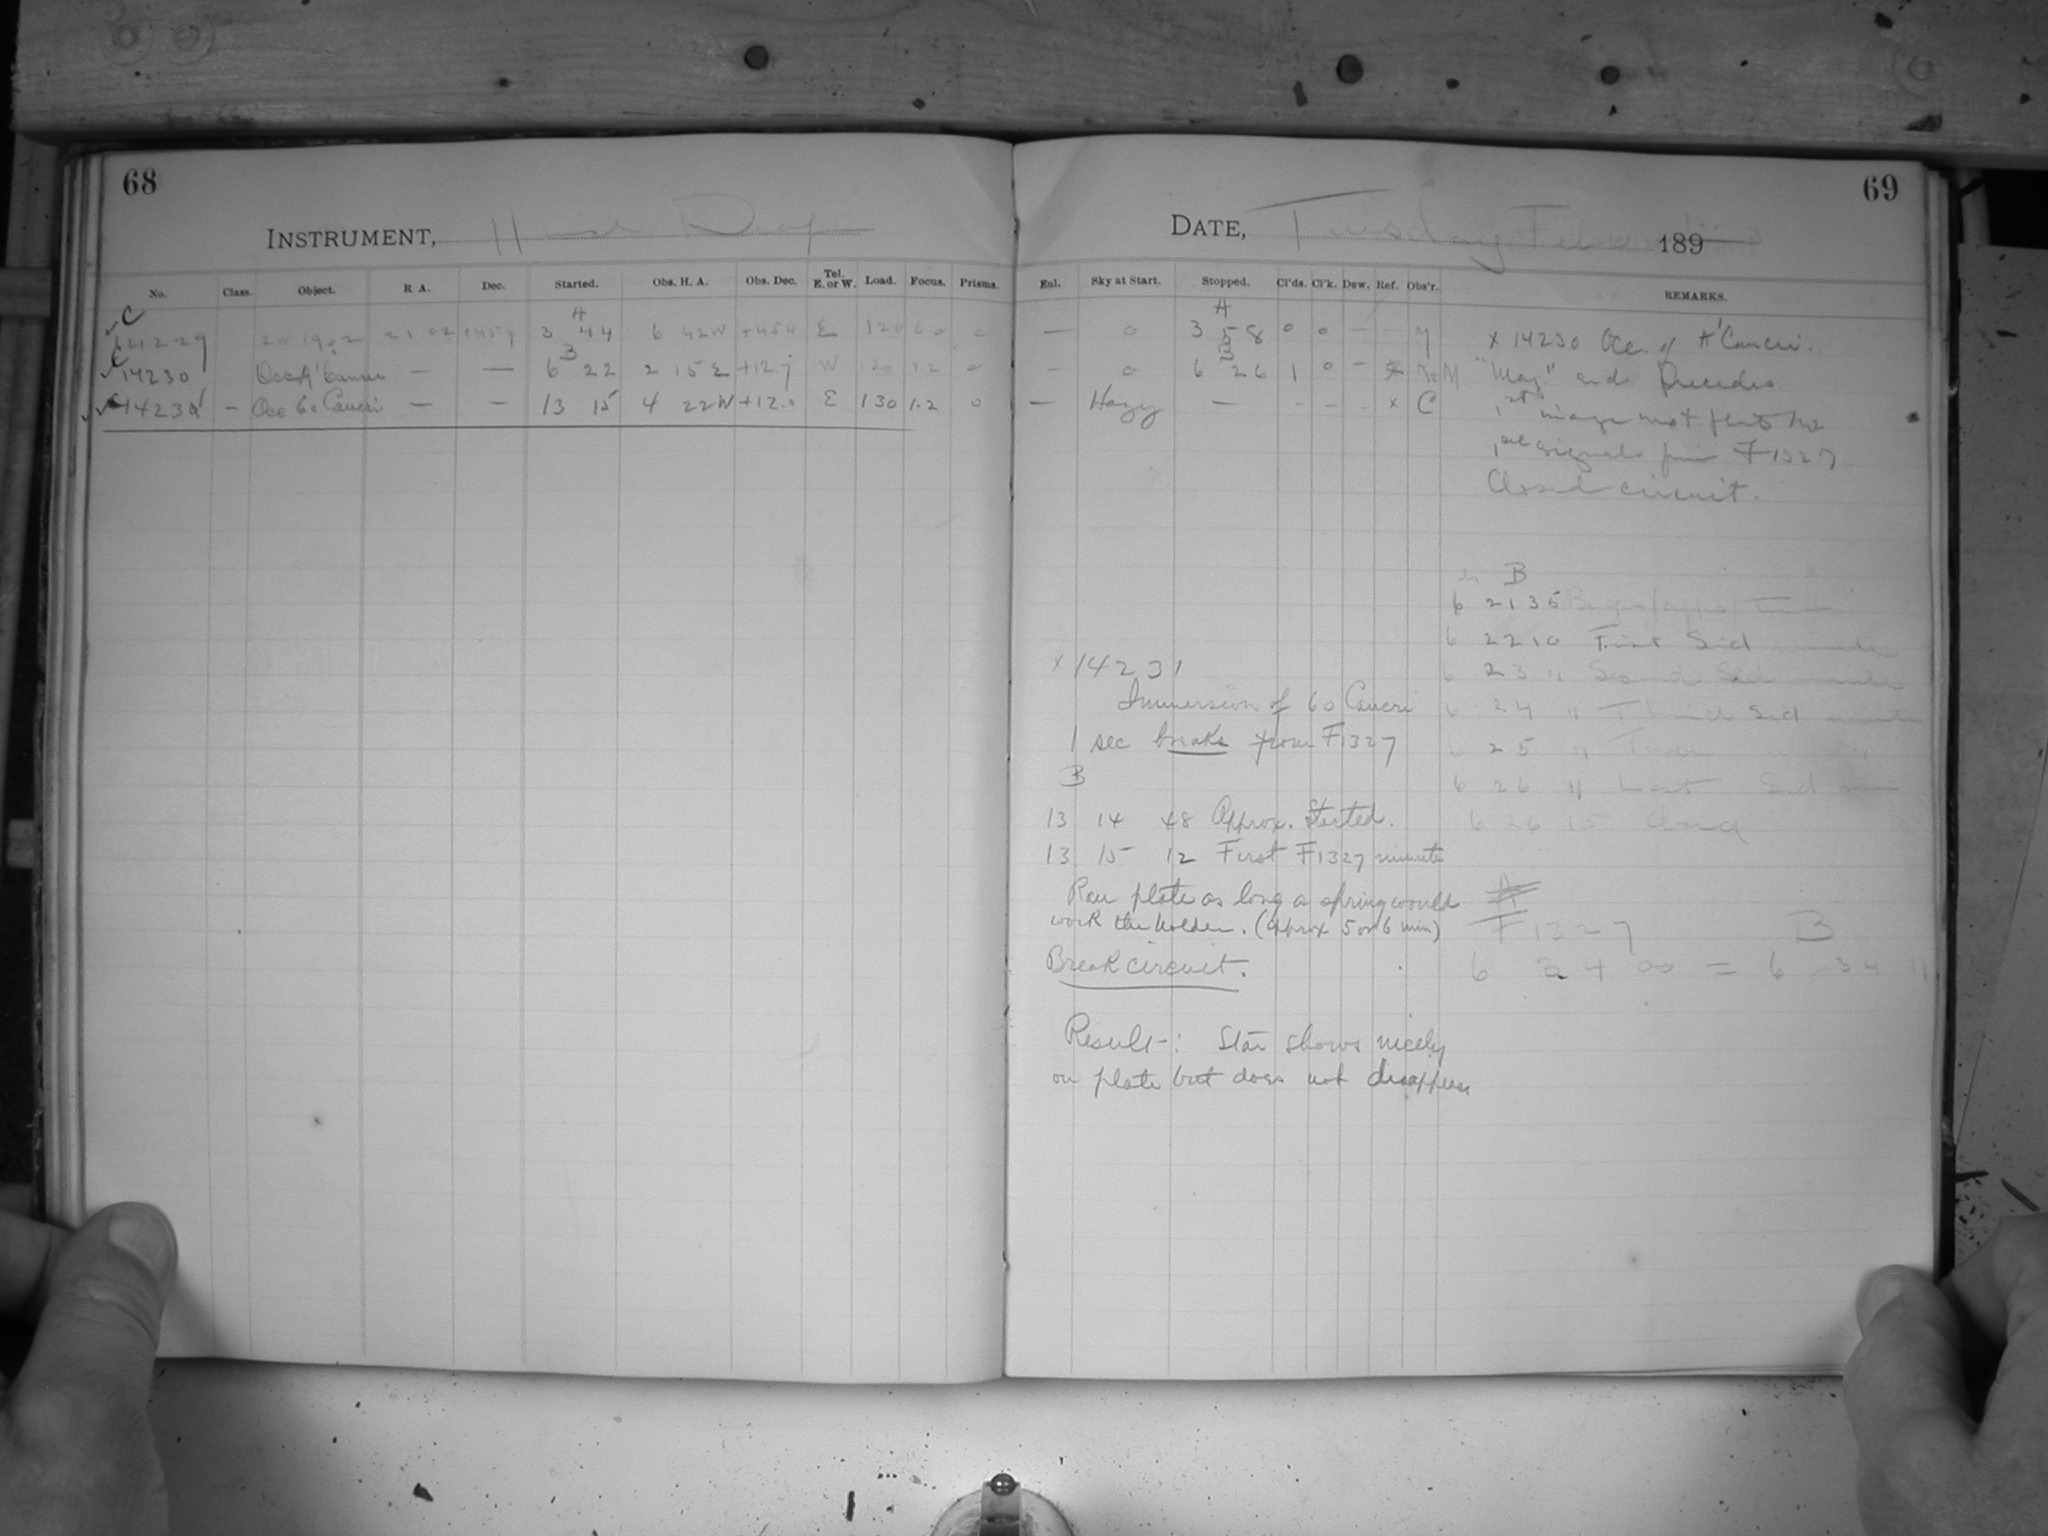 68
INSTRUMENT, H Draper
No. Class. Object. R A. Dec. Started. Obs. H. A. Obs. Dec. Tel. E. or W. Load. Focus. Prisms.
C
A
14229 21 02 3 44 6 42W E 120 6.0 0
C
B
14230 Occ A' Cancri — — 6 22 2 15 E +12.7 W 120 12 0
14231 — Occ 60 Cancri — — 13 15 4 22W +12.0 E 130 1.2 0
69
DATE, Tuesday Feb 189
Enl. Sky at Start. Stopped. Cl'ds. Cl'k. Dew. Ref. Obs'r. REMARKS.
A
— 0 3 58 0 0 — — x 14230 Occ. of A' Cancri.
B
— 0 6 26 1 0 — x "May." and Precedes
— Hazy — - — . x C 1st image
signals from F1327.
Closed circuit.
B
6 21 35
6 22 10 First Sid minute
6 23 " Second Sid minute
6 24 " Third Sid minute
6 25 "
6 26 " Last Sid
6 26 15 Closed
x 14231
Immersion of 60 Cancri
1 sec breaks from F1327
B
13 14 48 Approx. Started.
13 15 12 First F1327 minute
Ran plate as long as spring would
work the holder. (approx 5 or 6 min)
Break circuit.
A
F1327 B
6 24 00 = 6 11
Result-: Star shows nicely
on plate but does not disappear